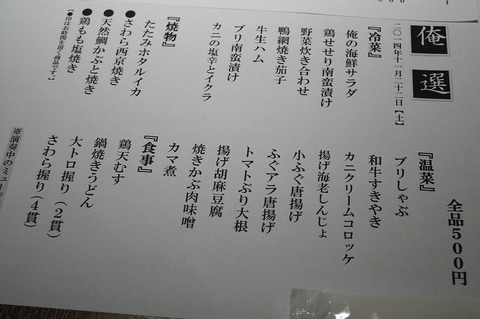 俺
選
二〇一四年十一月二十二日【土】
全品500円
『冷菜』
俺の海鮮サラダ
鶏せせり南蛮漬け
野菜炊き合わせ
鴨網焼き茄子
牛生ハム
ブリ南蛮漬け
カニの塩辛とイクラ
『焼物』
たたみホタルイカ
●さわら西京焼き
●天然鯛かぶと焼き
●鶏もも塩焼き
【●印はお時間を頂く商品です。】
『温菜』
ブリしゃぶ
和牛すきやき
カニクリームコロッケ
揚げ海老しんじょ
小ふぐ唐揚げ
ふぐアラ唐揚げ
トマトぶり大根
揚げ胡麻豆腐
焼きかぶ肉味噌
カマ煮
『食事』
鶏天むす
鍋焼きうどん
大トロ握り(2貫)
さわら握り(4貫)
※演奏中のミュー